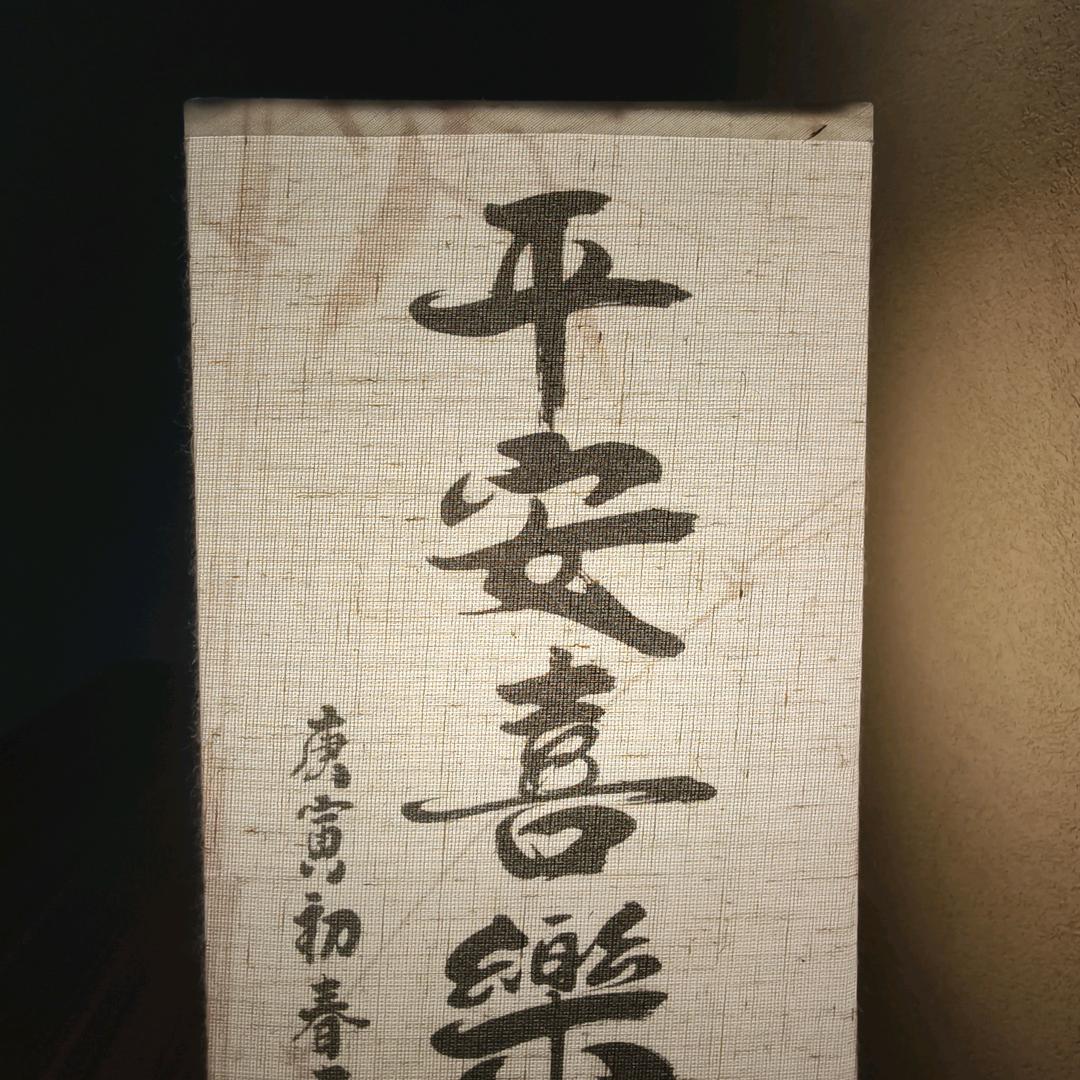 平安喜樂
庚寅初春